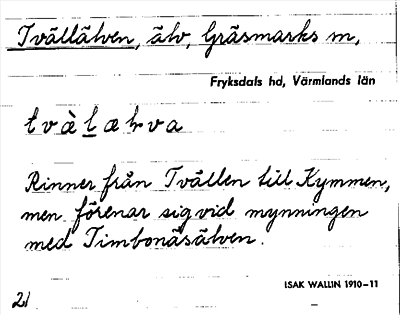 Tvällälven, älv, Gräsmarks sn,
Fryksdals hd, Värmlands län
tvàl̲æɽva
Rinner från Tvällen till Kymmen,
men förenar sig vid mynningen
med Timbonäsälven.
ISAK WALLIN 1910–11
21